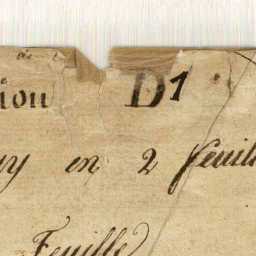 ion D1
y en 2 feuill
Feuille